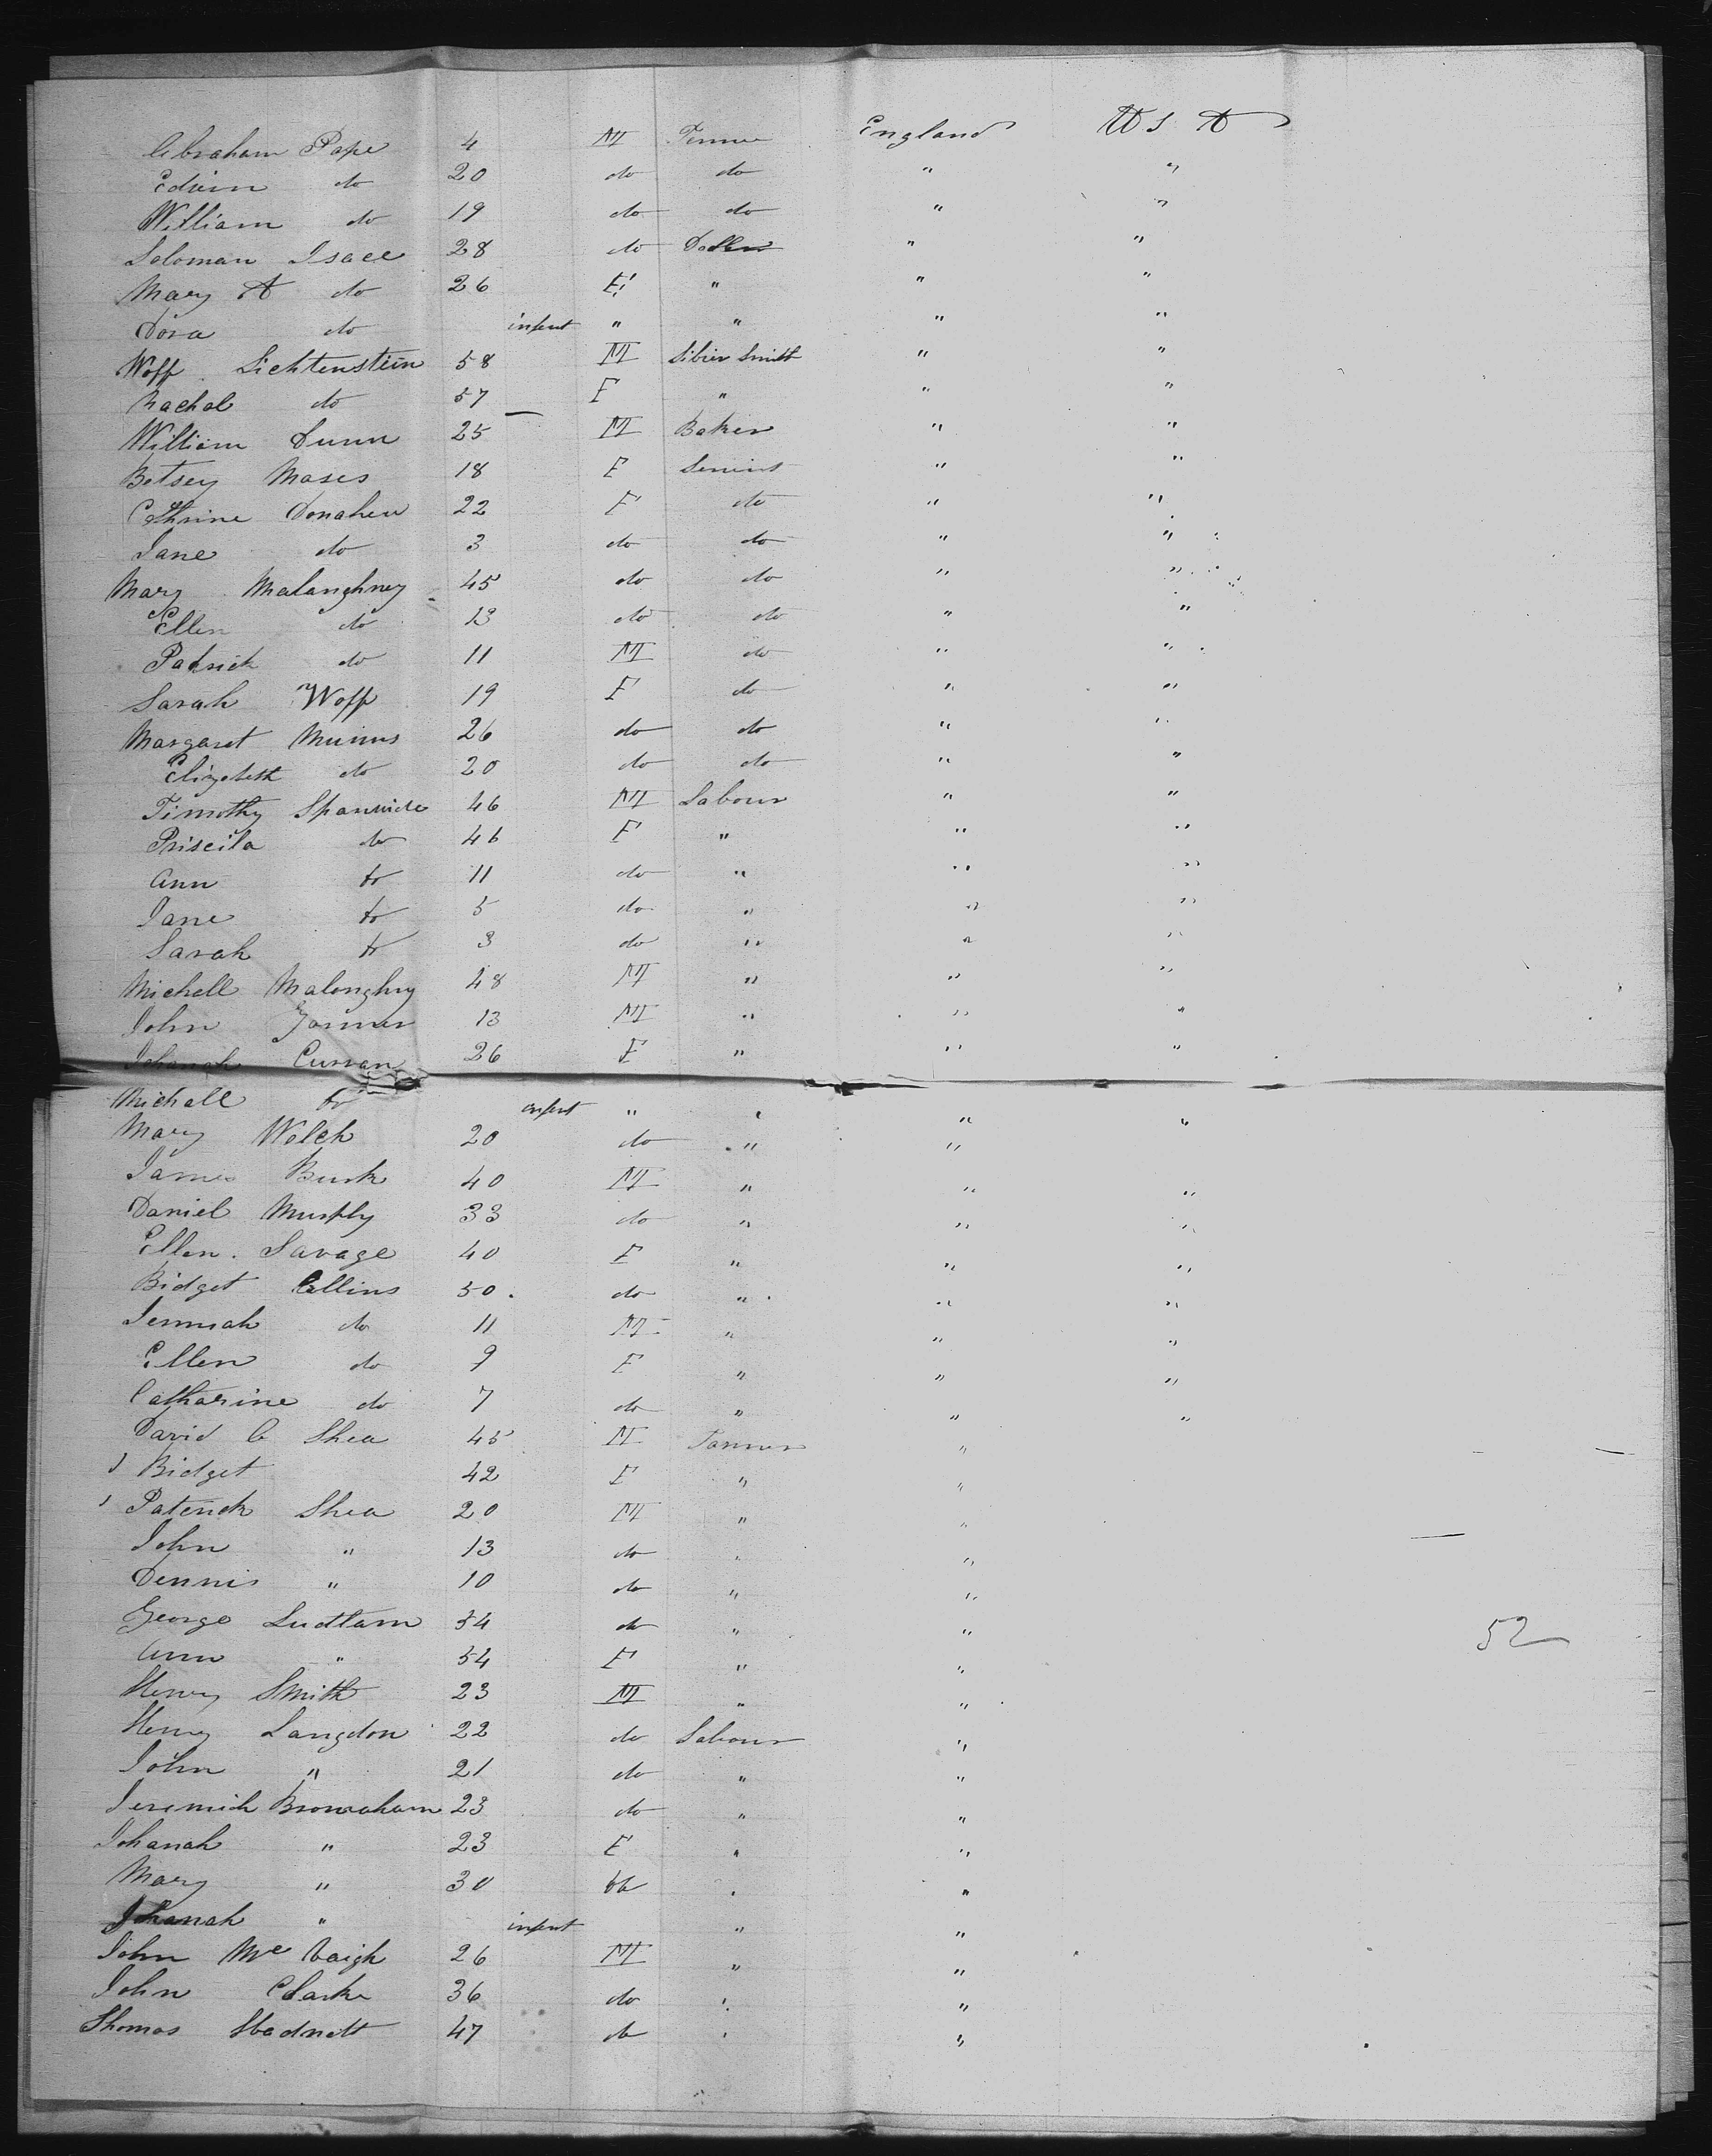 Abraham Pape 4 M England U S A
Edwin do 20 do do " "
William do 19 do do " "
Soloman Isace 28 do " "
Mary A do 26 F " " "
Dora do infent " " " "
Woff Lichtenstein 58 M Silver Smith " "
Rachal do 57 F " " "
William Dunn 25 M Baker " "
Betsey Moses 18 F " "
Cathrine Donaheu 22 F do " "
Jane do 3 do do " "
Mary Malanghney 45 do do " "
Ellen do 13 do do " "
Patrick do 11 M do " "
Sarah Woff 19 F do " "
Margaret 26 do do " "
Elizebeth do 20 do do " "
Timothy 46 M Labour " "
Priscila do 46 F " " "
Ann do 11 do " " "
Jane do 5 do " " "
Sarah do 3 do " " "
Michell Malonghny 48 M " " "
John 13 M " " "
Johanah Curran 26 F " " "
Michall do infent " " " "
Mary Welch 20 do " "
James Burk 40 M " " "
Daniel Murphy 33 do " " "
Ellen Savage 40 F " " "
Bidget Collins 50 do " " "
Jermiah do 11 M " " "
Ellen do 9 F " " "
Catharine do 7 do " " "
David O Shea 45 M Farmer "
Bidget 42 F " "
Patrick Shea 20 M " "
John " 13 do " "
Dennis " 10 do " "
George Ludlam 54 do " " 52
Ann " 54 F " "
Henry Smith 23 M " "
Henry Langdon 22 do Labour "
John " 21 do " "
Jeremich Bronaham 23 do " "
Johanah " 23 F " "
Mary " 30 do " "
Johanah " infent " "
John Mc Vaigh 26 M " "
John Clarke 36 do " "
Thomas 47 do " "